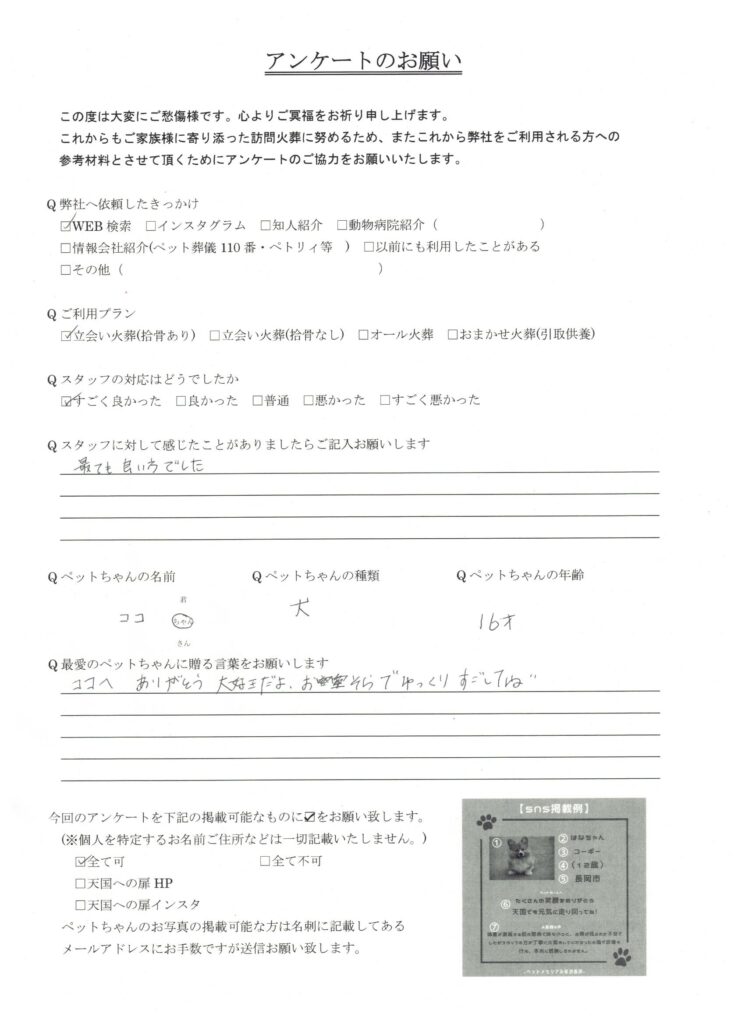 アンケートのお願い
この度は大変にご愁傷様です。心よりご冥福をお祈り申し上げます。
これからもご家族様に寄り添った訪問火葬に努めるため、またこれから弊社をご利用される方への
参考材料とさせて頂くためにアンケートのご協力をお願いいたします。
Q 弊社へ依頼したきっかけ
☑WEB 検索 □インスタグラム □知人紹介 □動物病院紹介（ ）
□情報会社紹介(ペット葬儀 110 番・ペトリィ等 ) □以前にも利用したことがある
□その他（ ）
Q ご利用プラン
☑立会い火葬(拾骨あり) □立会い火葬(拾骨なし) □オール火葬 □おまかせ火葬(引取供養)
Q スタッフの対応はどうでしたか
☑すごく良かった □良かった □普通 □悪かった □すごく悪かった
Q スタッフに対して感じたことがありましたらご記入お願いします
最ても良い方でした
Q ペットちゃんの名前 Q ペットちゃんの種類 Q ペットちゃんの年齢
君
ココ ちゃん 犬 16才
さん
Q 最愛のペットちゃんに贈る言葉をお願いします
ココへ ありがとう 大好きだよ、おそらでゆっくりすごしてね
今回のアンケートを下記の掲載可能なものに☑をお願い致します。
(※個人を特定するお名前ご住所などは一切記載いたしません。)
☑全て可 □全て不可
□天国への扉 HP
□天国への扉インスタ
ペットちゃんのお写真の掲載可能な方は名刺に記載してある
メールアドレスにお手数ですが送信お願い致します。
【sns掲載例】
① ② はなちゃん
③ コーギー
④ （12歳）
⑤ 長岡市
⑥ たくさんの笑顔をありがとう
天国でも元気に走り回ってね！
⑦